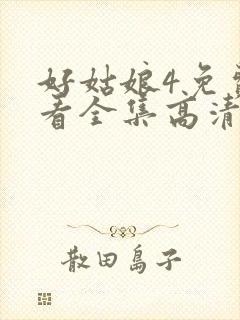 好姑娘4免费
看全集高清
散田岛子